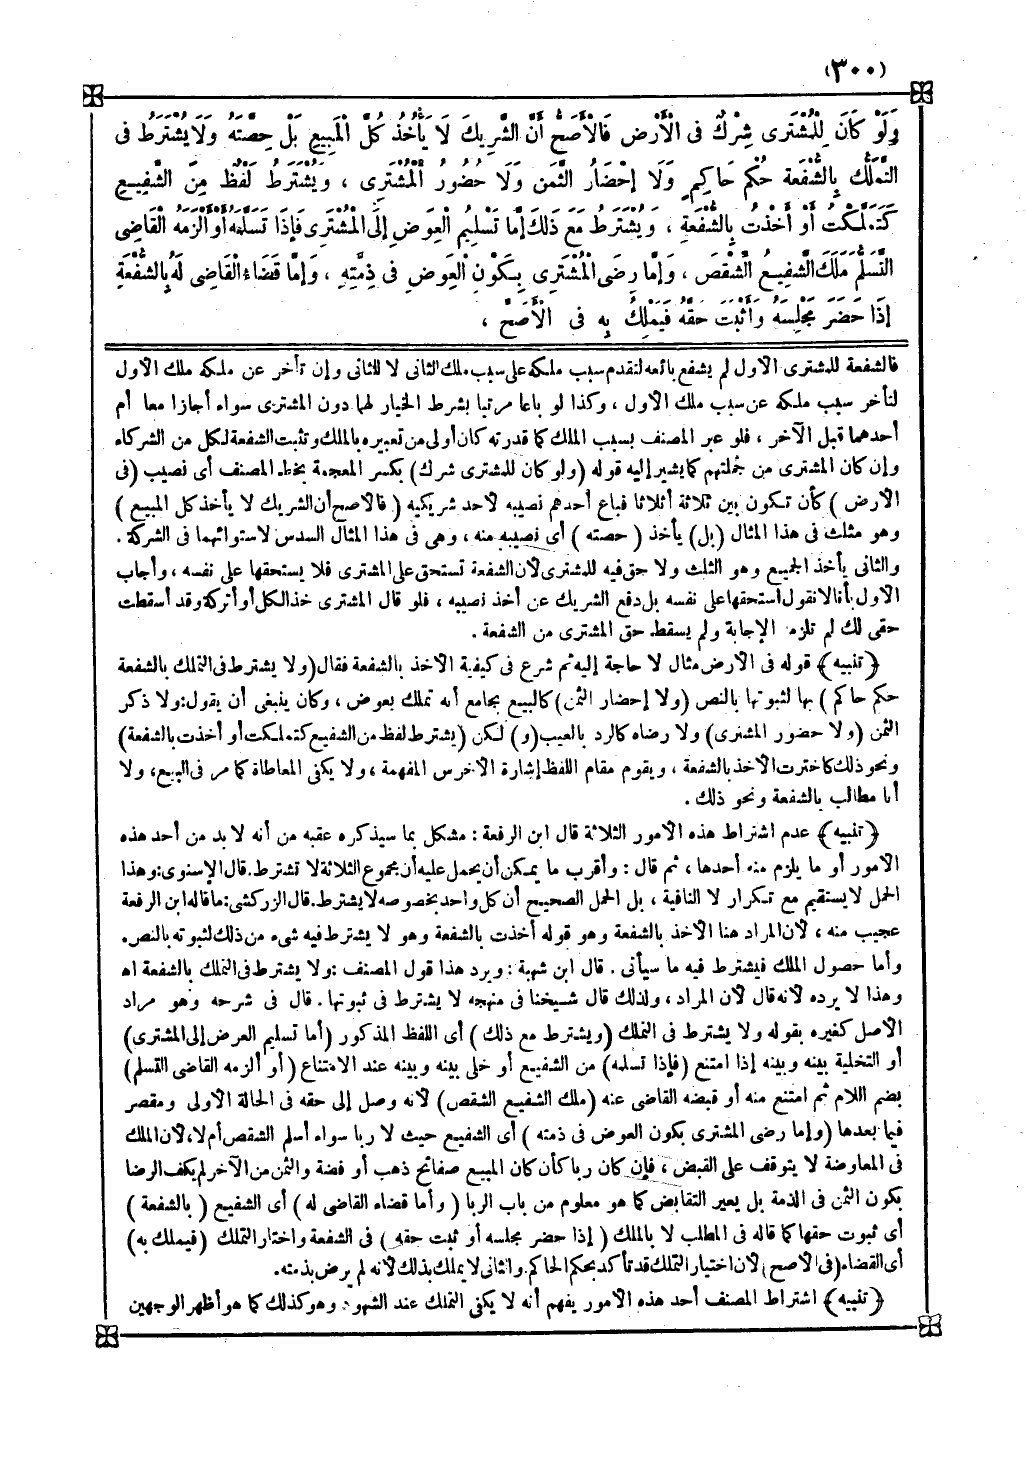 (٣٠٠)
وَلَوْ كَانَ لِلْمُشْتَرِى شِرْكٌ فى الْأَرْضِ فَالْأَصَحُّ أَنَّ الشَّرِيكَ لَا يَأْخُذُ كُلَّ الْمَبِيعِ بَلْ حِصَّتَهُ وَلَا يُشْتَرَطُ فى
التَّمَلُّكِ بِالشُّفْعَةِ حُكْمُ حَاكِمٍ وَلَا إحْضَارُ الثَّمَنِ وَلَا حُضُورُ الْمُشْتَرِى ، وَيُشْتَرَطُ لَفْظٌ مِنَ الشَّفِيعِ
كَتَمَلَّكْتُ أَوْ أَخَذْتُ بِالشُّفْعَةِ ، وَيُشْتَرَطُ مَعَ ذَلكَ إمَّا تَسْلِيمُ الْعِوَضِ إلَى الْمُشْتَرِى فَإذَا تَسَلَّمَهُ أَوْ أَلْزَمَهُ الْقَاضِى
التَّسَلُّمَ مَلَكَ الشَّفِيعُ الشِّقْصَ ، وَإمَّا رِضَى الْمُشْتَرِى بِكَوْنِ الْعِوَضِ فى ذِمَّتِهِ ، وَإمَّا قَضَاءُ الْقَاضِى لَهُ بِالشُّفْعَةِ
إذَا حَضَرَ مَجْلِسَهُ وَأَثْبَتَ حَقَّهُ فَيَمْلِكُ بِهِ فى الْأَصَحِّ ،
فالشفعة للمشترى الأول لم يشفع بائعه لتقدم سبب ملكه على سبب ملك الثانى لا للثانى وإن تأخر عن ملكه ملك الأول
لتأخر سبب ملكه عن سبب ملك الأول ، وكذا لو باعا مرتبا بشرط الخيار لهما دون المشترى سواء أجازا معا أم
أحدهما قبل الآخر ، فلو عبر المصنف بسبب الملك كما قدرته كان أولى من تعبيره بالملك وتثبت الشفعة لكل من الشركاء
وإن كان المشترى من جملتهم كما يشير إليه قوله (ولو كان للمشترى شرك) بكسر المعجمة بخط المصنف أى نصيب (فى
الأرض) كأن تكون بين ثلاثة أثلاثا فباع أحدهم نصيبه لأحد شريكيه (فالأصح أن الشريك لا يأخذ كل المبيع)
وهو مثلث فى هذا المثال (بل) يأخذ (حصته) أى نصيبه منه ، وهى فى هذا المثال السدس لاستوائهما فى الشركة .
والثانى يأخذ الجميع وهو الثلث ولا حق فيه للمشترى لأن الشفعة تستحق على المشترى فلا يستحقها على نفسه ، وأجاب
الأول بأنا لا نقول استحقها على نفسه بل دفع الشريك عن أخذ نصيبه ، فلو قال المشترى خذ الكل أو أتركه وقد أسقطت
حقى لك لم تلزمه الإجابة ولم يسقط حق المشترى من الشفعة .
﴿تنبيه﴾ قوله فى الأرض مثال لا حاجة إليه ثم شرع فى كيفية الأخذ بالشفعة فقال (ولا يشترط فى التملك بالشفعة
حكم حاكم) بها لثبوتها بالنص (ولا إحضار الثمن) كالبيع بجامع أنه تملك بعوض ، وكان ينبغى أن يقول: ولا ذكر
الثمن (ولا حضور المشترى) ولا رضاه كالرد بالعيب (و) لكن (يشترط لفظ من الشفيع كتملكت أو أخذت بالشفعة)
ونحو ذلك كاخترت الأخذ بالشفعة ، ويقوم مقام اللفظ إشارة الأخرس المفهمة ، ولا يكفى المعاطاة كما مر فى البيع، ولا
أنا مطالب بالشفعة ونحو ذلك .
﴿تنبيه﴾ عدم اشتراط هذه الأمور الثلاثة قال ابن الرفعة : مشكل بما سيذكره عقبه من أنه لا بد من أحد هذه
الأمور أو ما يلزم منه أحدها ، ثم قال : وأقرب ما يمكن أن يحمل عليه أن مجموع الثلاثة لا تشترط. قال الإسنوى: وهذا
الحمل لا يستقيم مع تكرار لا النافية ، بل الحمل الصحيح أن كل واحد بخصوصه لا يشترط. قال الزركشى: ما قاله ابن الرفعة
عجيب منه ، لأن المراد هنا الأخذ بالشفعة وهو قوله أخذت بالشفعة وهو لا يشترط فيه شىء من ذلك لثبوته بالنص.
وأما حصول الملك فيشترط فيه ما سيأتى . قال ابن شهبة : ويرد هذا قول المصنف : ولا يشترط فى التملك بالشفعة اه
وهذا لا يرده لأنه قال لأن المراد ، ولذلك قال شيخنا فى منهجه لا يشترط فى ثبوتها . قال فى شرحه وهو مراد
الأصل كغيره بقوله ولا يشترط فى التملك (ويشترط مع ذلك) أى اللفظ المذكور (أما تسليم العوض إلى المشترى)
أو التخلية بينه وبينه إذا امتنع (فإذا تسلمه) من الشفيع أو خلى بينه وبينه عند الامتناع (أو ألزمه القاضى التسلم)
بضم اللام ثم امتنع منه أو قبضه القاضى عنه (ملك الشفيع الشقص) لأنه وصل إلى حقه فى الحالة الأولى ومقصر
فيما بعدها (وإما رضى المشترى بكون العوض فى ذمته) أى الشفيع حيث لا ربا سواء أسلم الشقص أم لا، لأن الملك
فى المعاوضة لا يتوقف على القبض ، فإن كان ربا كأن كان المبيع صفائح ذهب أو فضة والثمن من الآخر لم يكف الرضا
بكون الثمن فى الذمة بل يعبر التقابض كما هو معلوم من باب الربا (وأما قضاء القاضى له) أى الشفيع (بالشفعة)
أى ثبوت حقها كما قاله فى المطلب لا بالملك (إذا حضر مجلسه أو ثبت حقه) فى الشفعة واختار التملك (فيملك به)
أى القضاء (فى الأصح) لأن اختيار التملك قد تأكد بحكم الحاكم. والثانى لا يملك بذلك لأنه لم يرض بذمته.
﴿تنبيه﴾ اشتراط المصنف أحد هذه الأمور يفهم أنه لا يكفى التملك عند الشهود وهو كذلك كما هو أظهر الوجهين